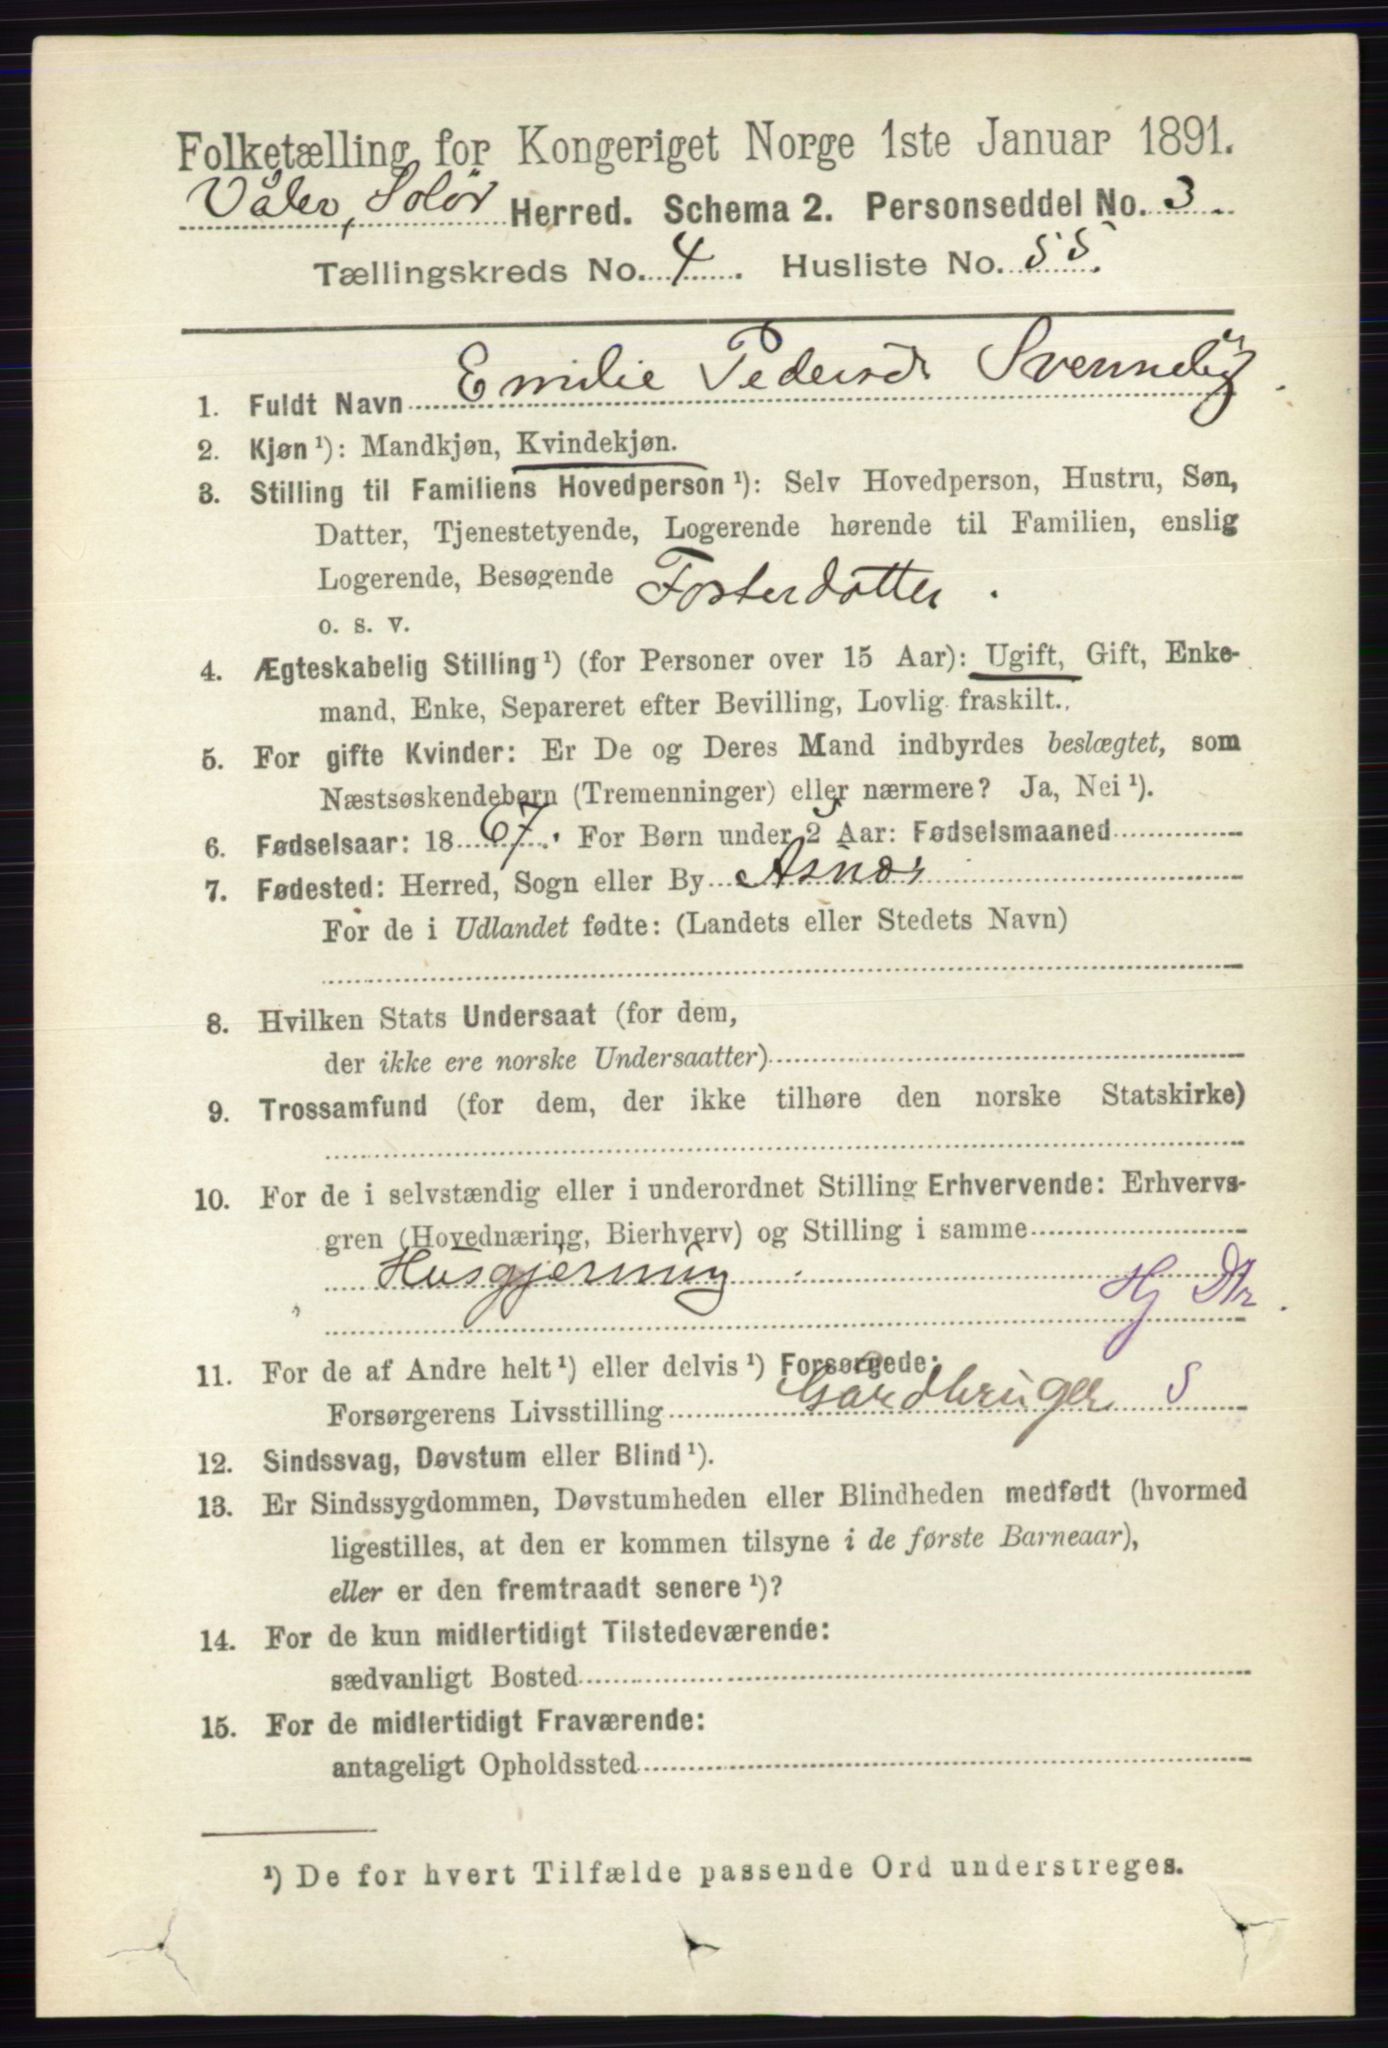 Folketælling for Kongeriget Norge 1ste Januar 1891.
Våler, Solør Herred. Schema 2. Personseddel No. 3.
Tællingskreds No. 4. Husliste No. 55.
1. Fuldt Navn Emilie Pedersd.
2. Kjøn ¹): Mandkjøn, Kvindekjøn.
3. Stilling til Familiens Hovedperson ¹): Selv Hovedperson, Hustru, Søn,
Datter, Tjenestetyende, Logerende hørende til Familien, enslig
Logerende, Besøgende Fosterdatter.
o. s. v.
4. Ægteskabelig Stilling ¹) (for Personer over 15 Aar): Ugift, Gift, Enke-
mand, Enke, Separeret efter Bevilling, Lovlig fraskilt.
5. For gifte Kvinder: Er De og Deres Mand indbyrdes beslægtet, som
Næstsøskendebørn (Tremenninger) eller nærmere? Ja, Nei ¹).
6. Fødselsaar: 1867. For Børn under 2 Aar: Fødselsmaaned
7. Fødested: Herred, Sogn eller By Asnæs
For de i Udlandet fødte: (Landets eller Stedets Navn)
8. Hvilken Stats Undersaat (for dem,
der ikke ere norske Undersaatter)
9. Trossamfund (for dem, der ikke tilhøre den norske Statskirke)
10. For de i selvstændig eller i underordnet Stilling Erhvervende: Erhvervs-
gren (Hovednæring, Bierhverv) og Stilling i samme
Husgjerning
Hj Dtr.
11. For de af Andre helt ¹) eller delvis ¹) Forsørgede:
Forsørgerens Livsstilling Gårdbruger S
12. Sindssvag, Døvstum eller Blind ¹).
13. Er Sindssygdommen, Døvstumheden eller Blindheden medfødt (hvormed
ligestilles, at den er kommen tilsyne i de første Barneaar),
eller er den fremtraadt senere ¹)?
14. For de kun midlertidigt Tilstedeværende:
sædvanligt Bosted
15. For de midlertidigt Fraværende:
antageligt Opholdssted
¹) De for hvert Tilfælde passende Ord understreges.